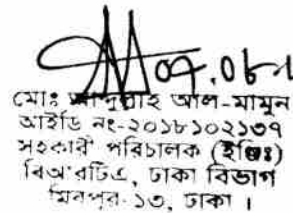 ০৭.০৮.১
মোঃ আব্দুল্লাহ আল-মামুন
আইডি নং-২০১৮১০২১৩৭
সহকারী পরিচালক (ইঞ্জিঃ)
বিআরটিএ, ঢাকা বিভাগ
মিরপুর-১৩, ঢাকা ।